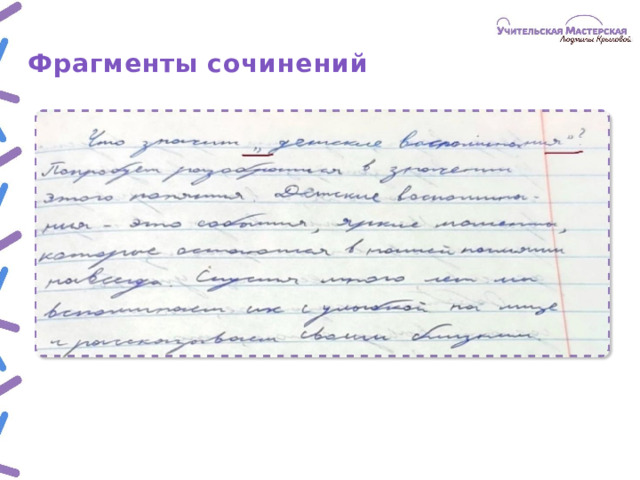 Учительская Мастерская
Людмилы Крыловой
Фрагменты сочинений
Что значит „детские воспоминания"?
Попробуем разобраться в значении
этого понятия. Детские воспомина-
ния - это события, яркие моменты,
которые остаются в нашей памяти
навсегда. Спустя много лет мы
вспоминаем их с улыбкой на лице
и рассказываем своим близким.